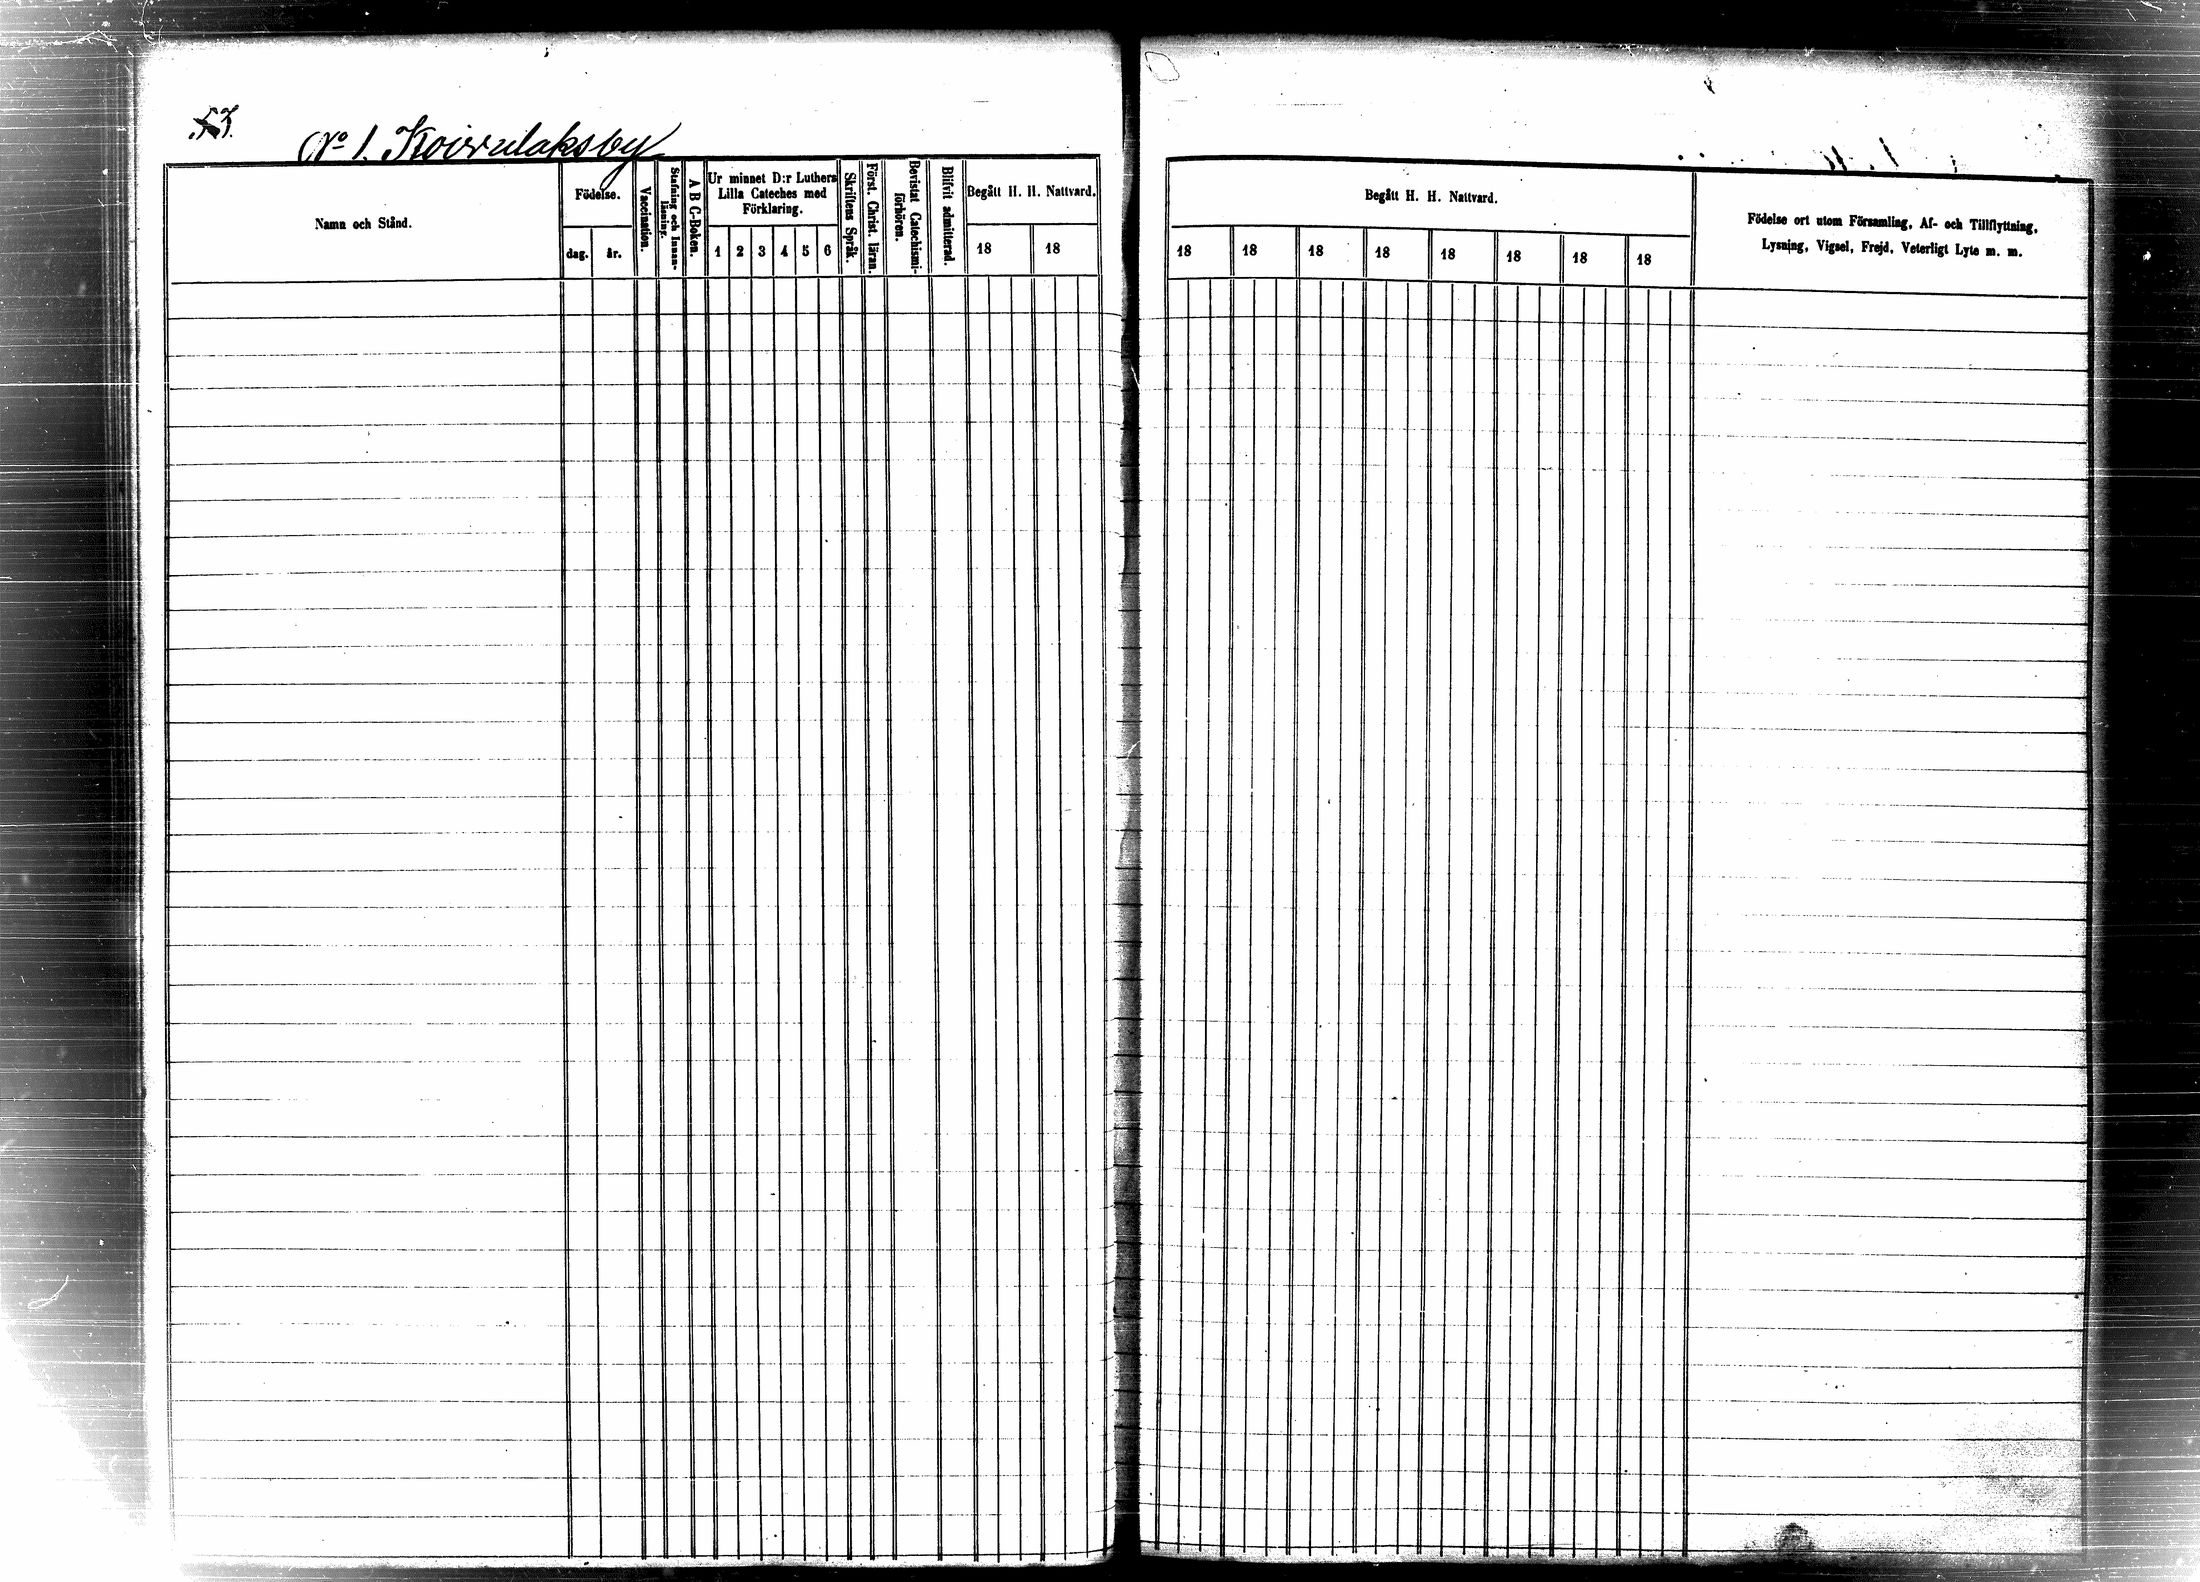 53.
No 1. Koivulaksby
Namn och Stånd.
Födelse.
dag.
år.
Vaccination.
Stafning och Innan-
läsning.
A B C-Boken.
Ur minnet D:r Luthers
Lilla Cateches med
Förklaring.
1 2 3 4 5 6
Skriftens Språk.
Först. Christ. läran.
Bevistat Catechismi-
förhören.
Blifvit admitterad.
Begått H. H. Nattvard.
18 18
Begått H. H. Nattvard.
18 18 18 18 18 18 18 18
Födelse ort utom Församling, Af- och Tillflyttning,
Lysning, Vigsel, Frejd, Veterligt Lyte m. m.